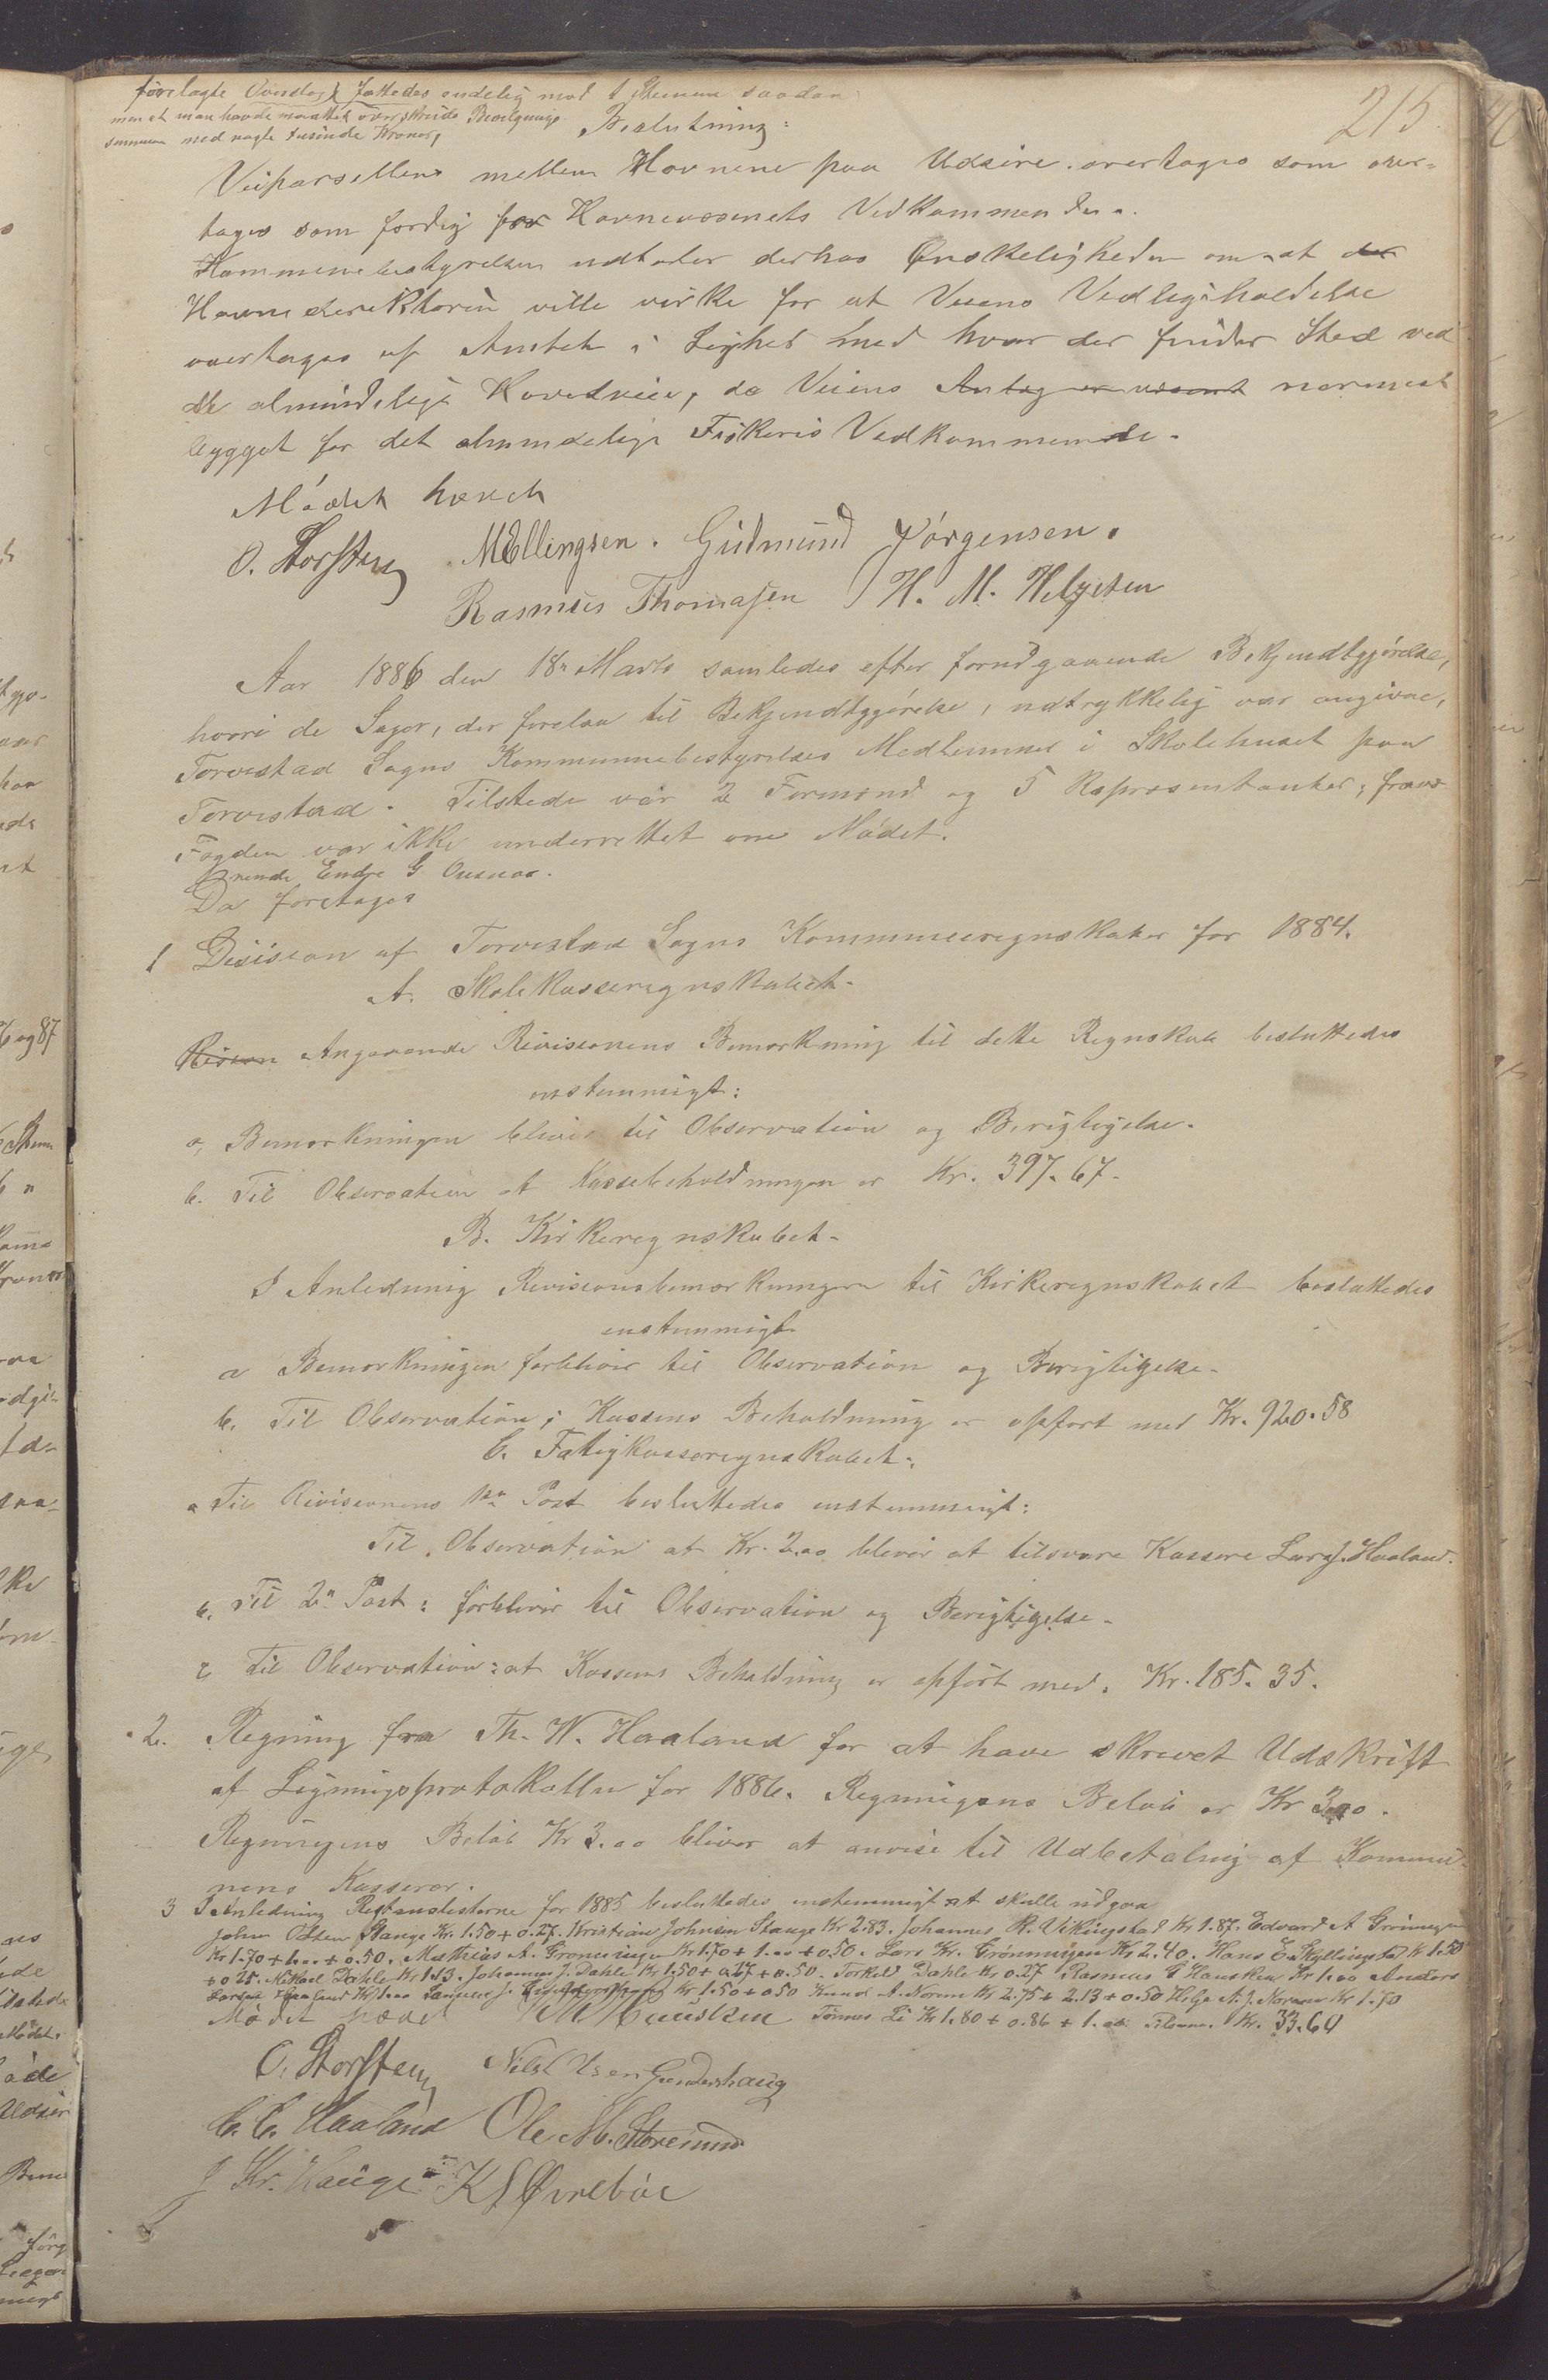 215
forelagte Overslag, fattedes endelig mod 1 Stemme saadan
men at man havde maattet överskride Bevilgnings
summen med nogle tusinde Kroner,
Beslutning:
Veiparsellens mellem Havnene paa Udsire overtages som over-
tages som færdig for Havnevæsenets Vedkommende.
Kommunebestyrelsen udtaler derhos Ønskeligheden om at der
Havnedirektören ville virke for at Veiens Vedligeholdelse
overtages af Amtet i Lighed med hvar der finder Sted ved
de almindelige Hovedveie, da Veiens Anlæg er nærmest
bygget for det almindelige Fiskeris Vedkommende.
Mödet hævet
O. Storsten MEllingsen. Gudmund Jörgensen.
Rasmus Thomasen H. M. Helgesen
Aar 1886 den 18n Marts samledes efter forudgaaende Bekjendtgjörelse,
hvori de Sager, der forelaa til Bekjendtgjörelse, udtrykkelig var angivne,
Torvestad Sogns Kommunebestyrelses Medlemmer i Skolehuset paa
Torvestad. Tilstede var 2 Formænd og 5 Repræsentanter; fravæ
Fogden var ikke underrettet om Mödet.
rende Endre G
Da foretages
1 Desision af Torvestad Sogns Kommuneregnskaber for 1884.
A. Skolekasseregnskabet.
Angaaende Revisionens Bemærkning til dette Regnskab besluttedes
enstemmigt:
a, Bemærkningen bliver til Observation og Berigtigelse.
b. Til Observation at Kassebeholdningen er Kr. 397.67.
B. Kirkeregnskabet.
I Anledning Revisionsbemærkningen til Kirkeregnskabet besluttedes
enstemmigt
a Bemærkningen forbliver til Observation og Berigtigelse.
b. Til Observation; Kassens Beholdning er opfört med Kr. 920.58
C. Fatigkasseregnskabet.
a Til Revisionens 1ste Post besluttedes enstemmigt:
Til Observation at Kr. 2.00 bliver at tilsvare Kassere Lars J. Haaland.
b. Til 2n Post: forbliver til Observation og Berigtigelse.
c Til Observation: at Kassens Beholdning er opfört med. Kr. 185.35.
2. Regning fra Th. W. Haaland for at have skrevet Udskrift
af Ligningsprotokollen for 1886. Regningens Belöb er Kr 3.00.
Regningens Belöb Kr 3.00 bliver at anvise til Udbetaling af Kommu-
nens Kasserer.
3 I Anledning Restanselisterne for 1885 besluttedes enstemmigt at skulle udgaa
John Olsen Stange Kr. 1.50 + 0.27. Kristian Johnsen Stange Kr 2.83. Johannes R. Vikingstad Kr. 1.87. Edvard A Grönningen
Kr 1.70 + 1.00 + 0.50. Mathias A. Grönningen Kr 1.50 + 1.00 + 0.50. Lars Kr. Grönningen Kr 2.40. Hans E. Skyllingstad Kr 1.50
+ 0 25. Mikael Dahle Kr 1.13. Johannes J. Dahle Kr 1.50 + 0.27 + 0.50. Torkild Dahle Kr 0.27 Rasmus G Hausken Kr 1.00 Anders
Larsen Haaland Kr 1.00 Kr 1.50 + 0 50 Knud A. Norem Kr 2.75 + 2.13 + 0.50 Helge A. J. Norem Kr 1.50
Mödet hævet M Hausken Tönnes Li Kr 1.80 + 0.86 + 1.00 Tilsam. Kr. 33.64
O. Storsten Nils Gunders haug
C. C. Haaland Ole M. Storesund
J Kr. Hauge K S Øvreböe